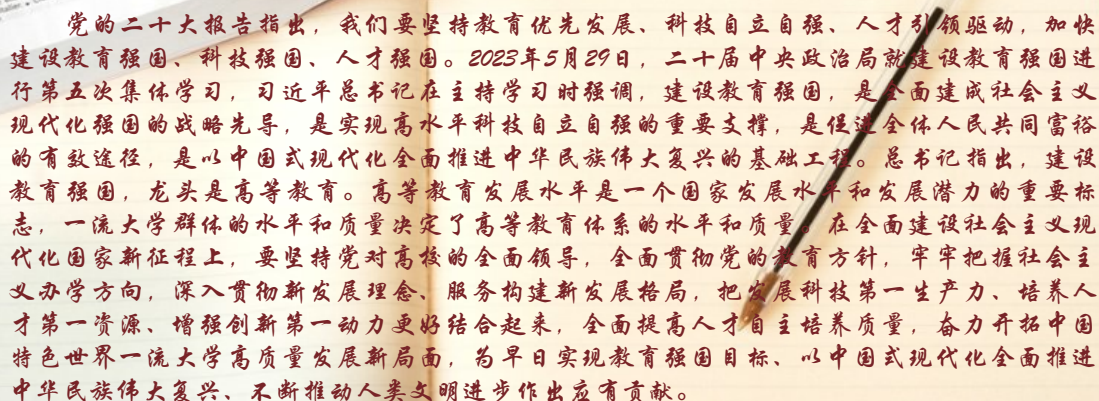 党的二十大报告指出，我们要坚持教育优先发展、科技自立自强、人才引领驱动，加快
建设教育强国、科技强国、人才强国。2023年5月29日，二十届中央政治局就建设教育强国进
行第五次集体学习，习近平总书记在主持学习时强调，建设教育强国，是全面建成社会主义
现代化强国的战略先导，是实现高水平科技自立自强的重要支撑，是促进全体人民共同富裕
的有效途径，是以中国式现代化全面推进中华民族伟大复兴的基础工程。总书记指出，建设
教育强国，龙头是高等教育。高等教育发展水平是一个国家发展水平和发展潜力的重要标
志，一流大学群体的水平和质量决定了高等教育体系的水平和质量。在全面建设社会主义现
代化国家新征程上，要坚持党对高校的全面领导，全面贯彻党的教育方针，牢牢把握社会主
义办学方向，深入贯彻新发展理念、服务构建新发展格局，把发展科技第一生产力、培养人
才第一资源、增强创新第一动力更好结合起来，全面提高人才自主培养质量，奋力开拓中国
特色世界一流大学高质量发展新局面，为早日实现教育强国目标、以中国式现代化全面推进
中华民族伟大复兴、不断推动人类文明进步作出应有贡献。